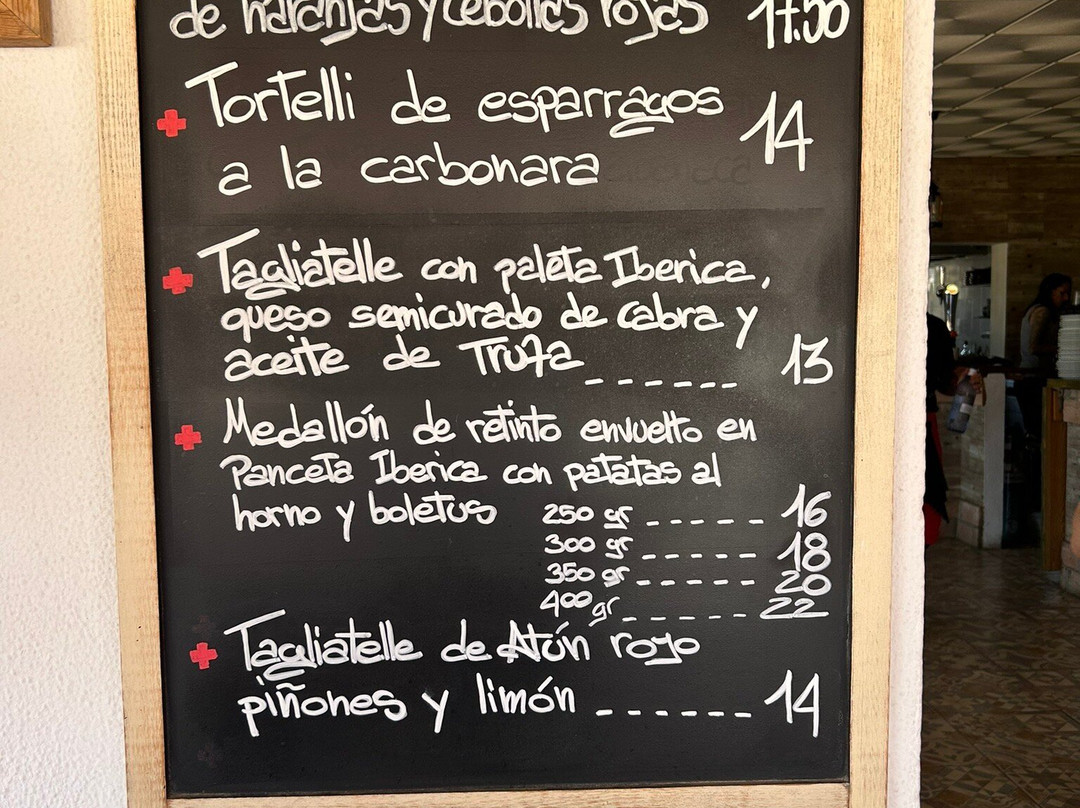 de naranjas y cebollas rojas 17.50
Tortelli de esparragos
a la carbonara 14
Tagliatelle con paleta Iberica,
queso semicurado de cabra y
aceite de Trufa ______ 13
Medallón de retinto envuelto en
Panceta Iberica con patatas al
horno y boletus
250 gr ----- 16
300 gr ---- 18
350 gr ---- 20
400 gr ----- 22
Tagliatelle de Atún rojo
piñones y limón ------ 14